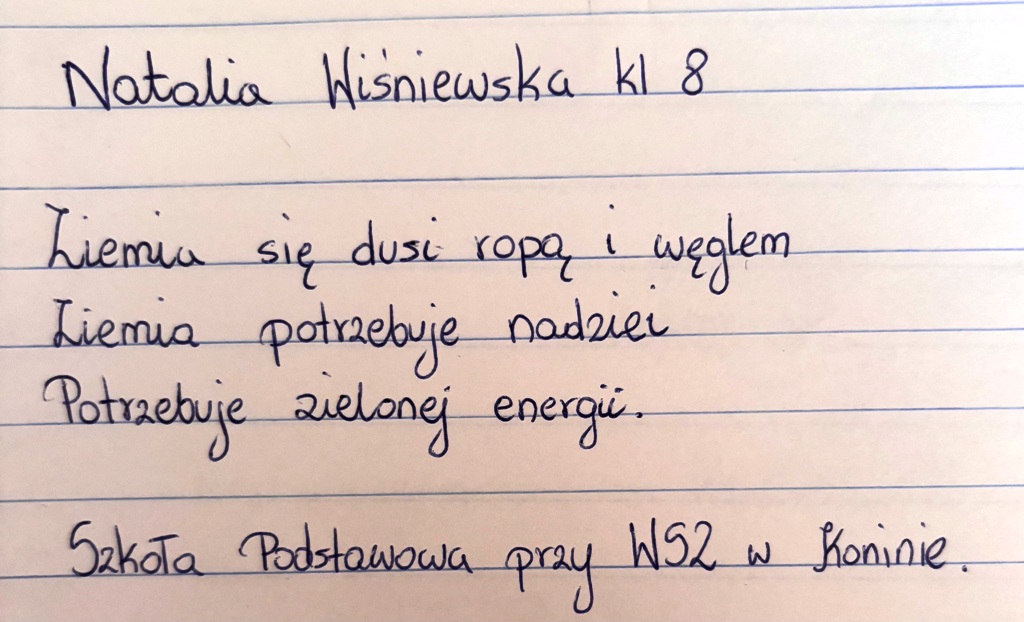 Natalia Wiśniewska kl 8
Ziemia się dusi ropą i węglem
Ziemia potrzebuje nadziei
Potrzebuje zielonej energii.
Szkoła Podstawowa przy WSZ w Koninie.